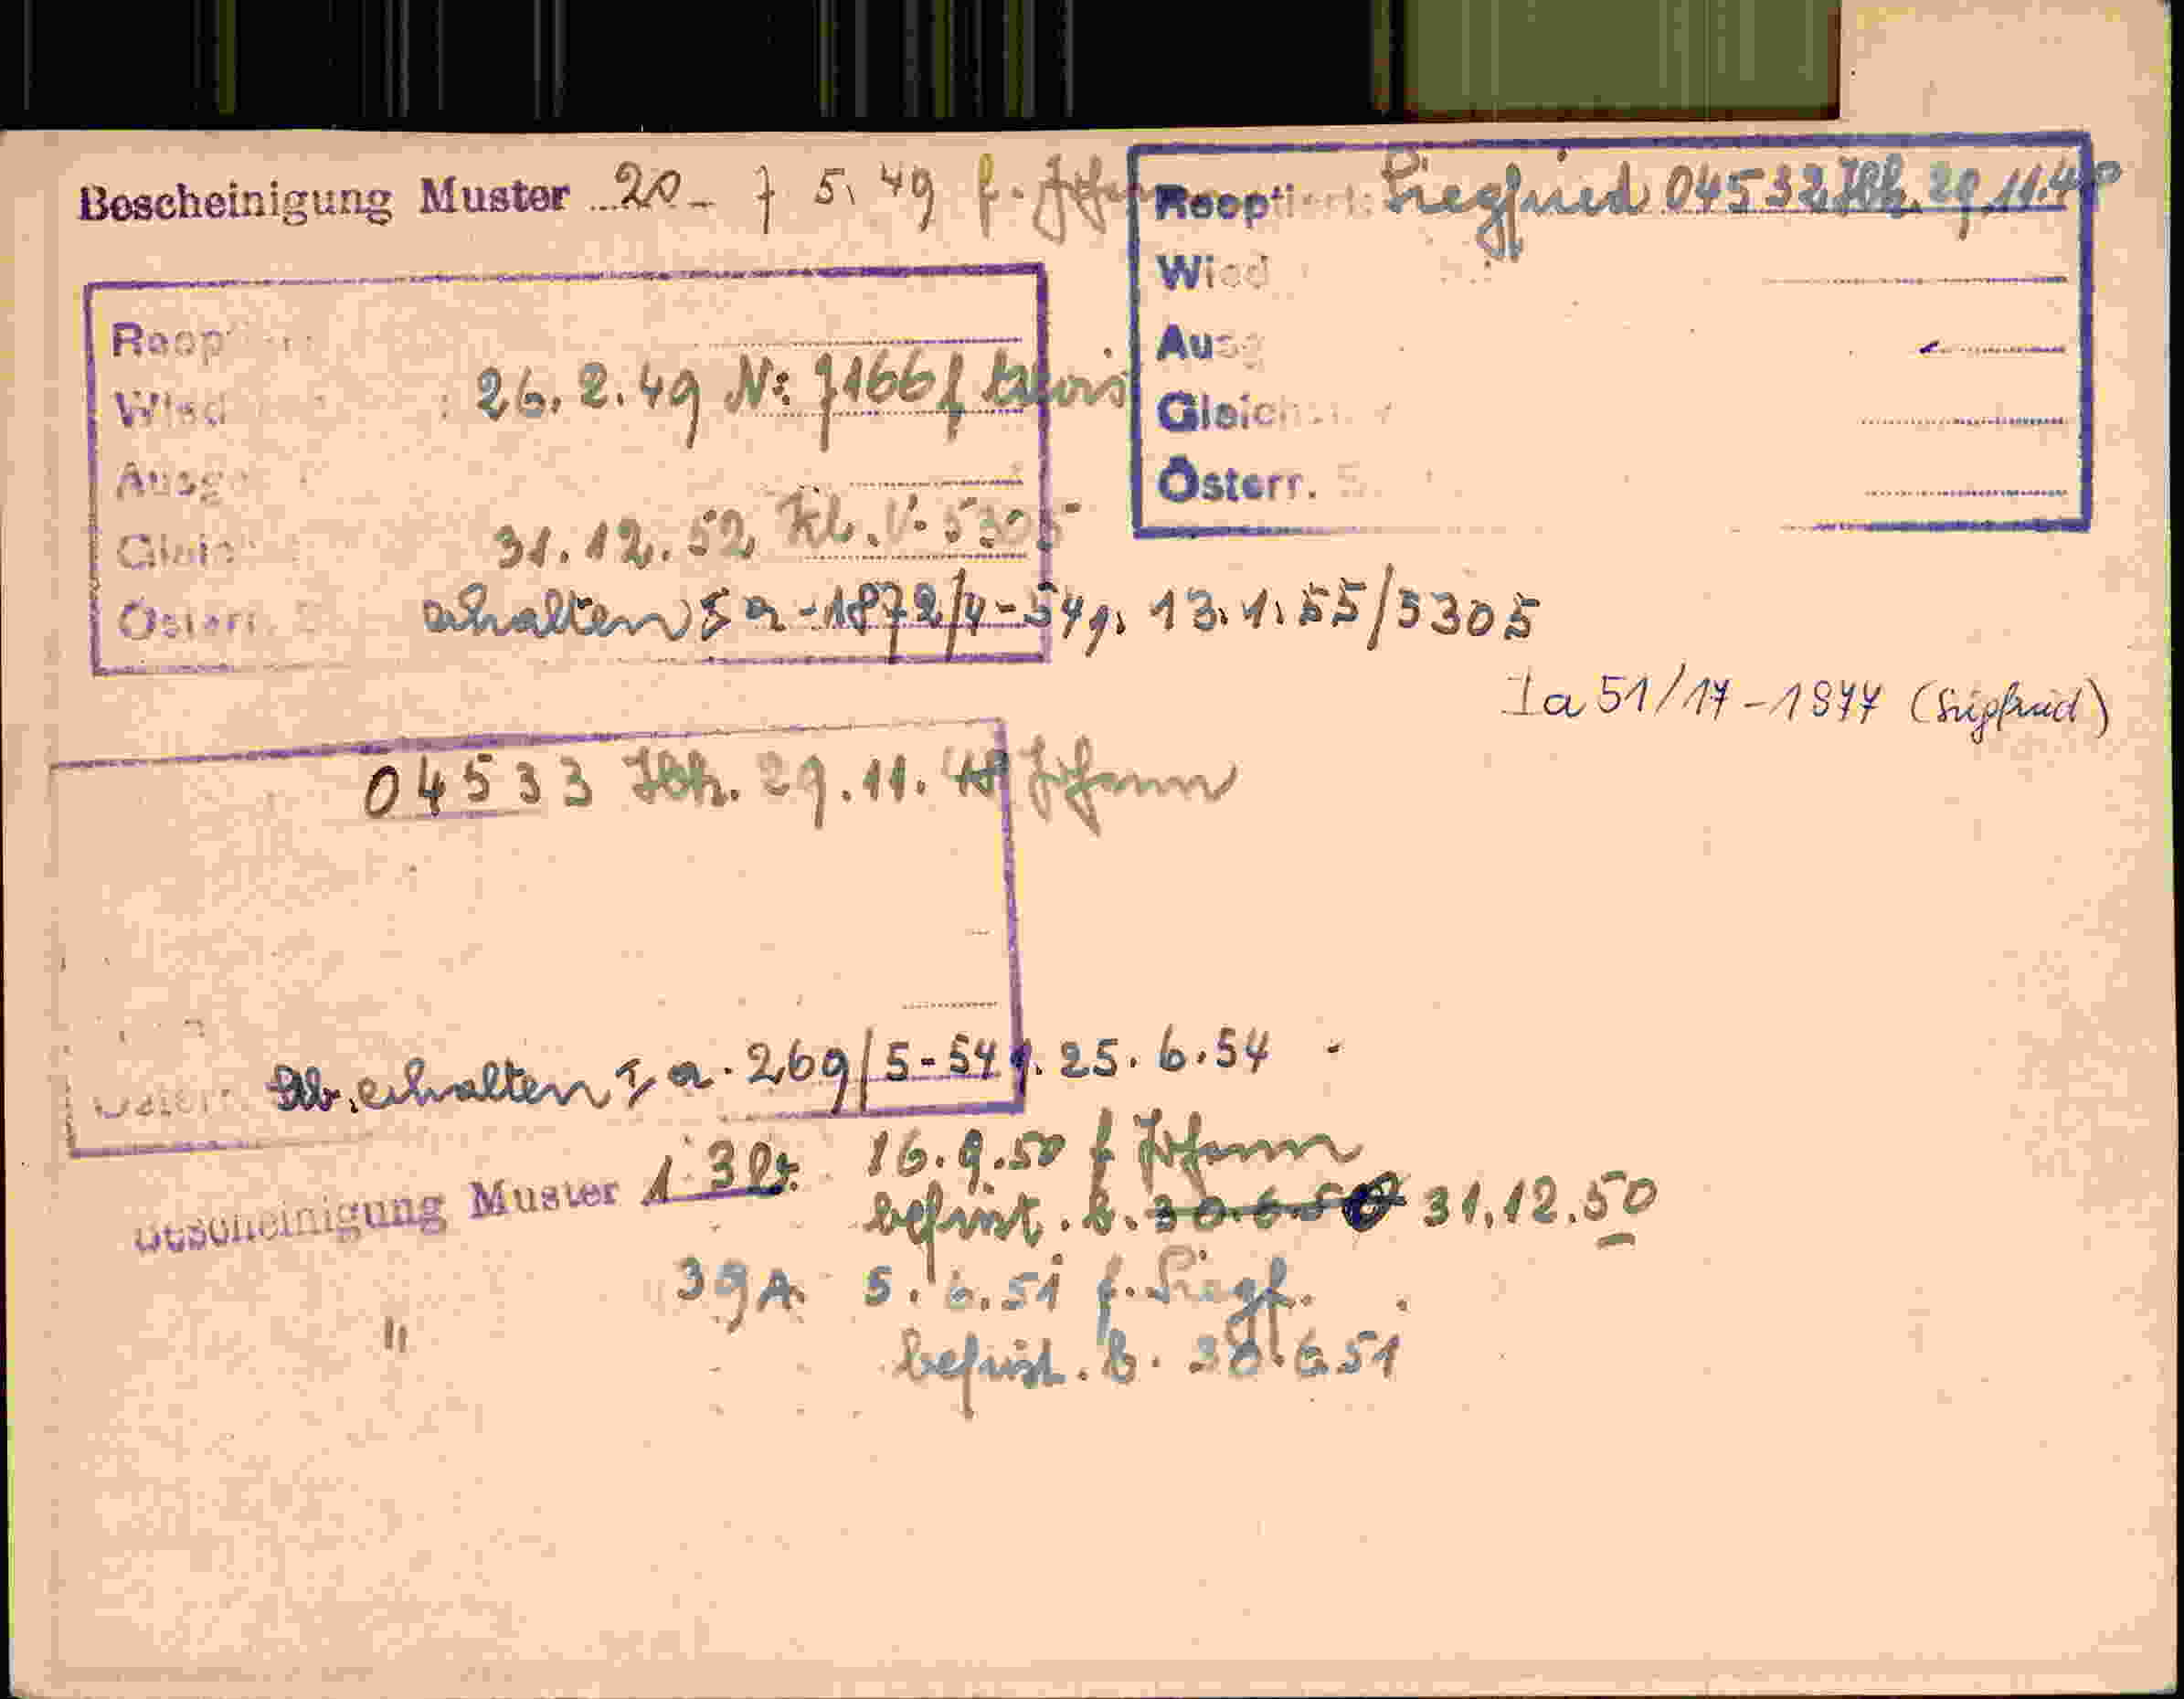 Bescheinigung Muster 20 7 5. 49 f. Johann
Reoptiert: Siegfried 04532 Jbk. 29.11.48
Wied
Ausg
Gleich
Österr. S.
Reoptiert
Wied : 26. 2. 49 Nr 7166 f Alois
Ausg
Gleich 31. 12. 52 Kl. V. 5305
Österr. S erhalten I a - 1872/4-54 g. 13. 1. 55/5305
Ia 51/17-1977 (Siegfried)
04533 Jbk. 29. 11. 48 Johann
Österr. Stb. erhalten I a. 269/5-54 g. 25. 6. 54
Bescheinigung Muster 1 16. 9. 50 f Johann
befrist. b. 30.6.50 31. 12. 50
39A. 5. 6. 51 f. Siegf.
" befrist. b. 30. 6 51